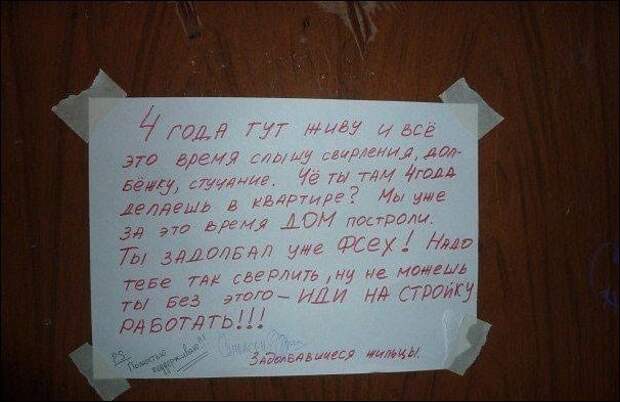 4 года тут живу и всё
это время слышу свирления, дол-
бёжку, стучание. Чё ты там 4 года
делаешь в квартире? Мы уже
за это время ДОМ построли.
Ты задолбал уже ФСЕХ! Надо
тебе так сверлить, ну не можешь
ты без этого – ИДИ НА СТРОЙКУ
РАБОТАТЬ!!!
Задолбавшиеся жильцы.
P.S
Полностью
поддерживаю!!!